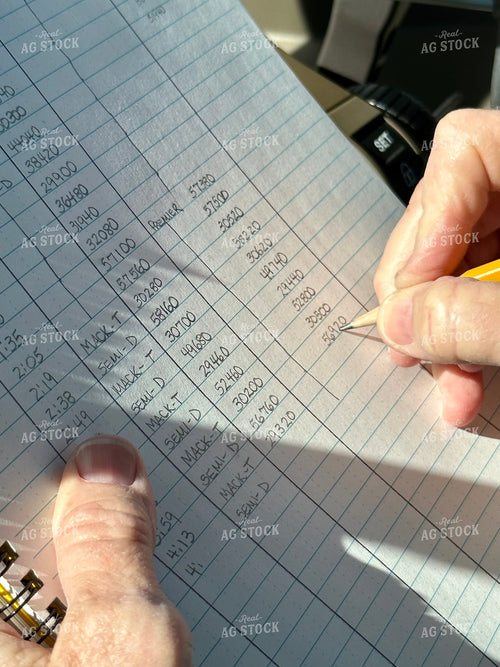 -Real-
AG STOCK
SET
30300
49040
38420
29100
36480
31940
32080
57100
57560
30280
58160
30700
49680
29460
52460
30200
56760
29320
PREMIER 57380
57500
30520
30620
49740
29440
52800
30500
56920
MACK-T
SEMI-D
MACK-T
SEMI-D
MACK-T
SEMI-D
MACK-T
SEMI-D
MACK-T
SEMI-D
2:05
2:19
2:38
4:13
4: